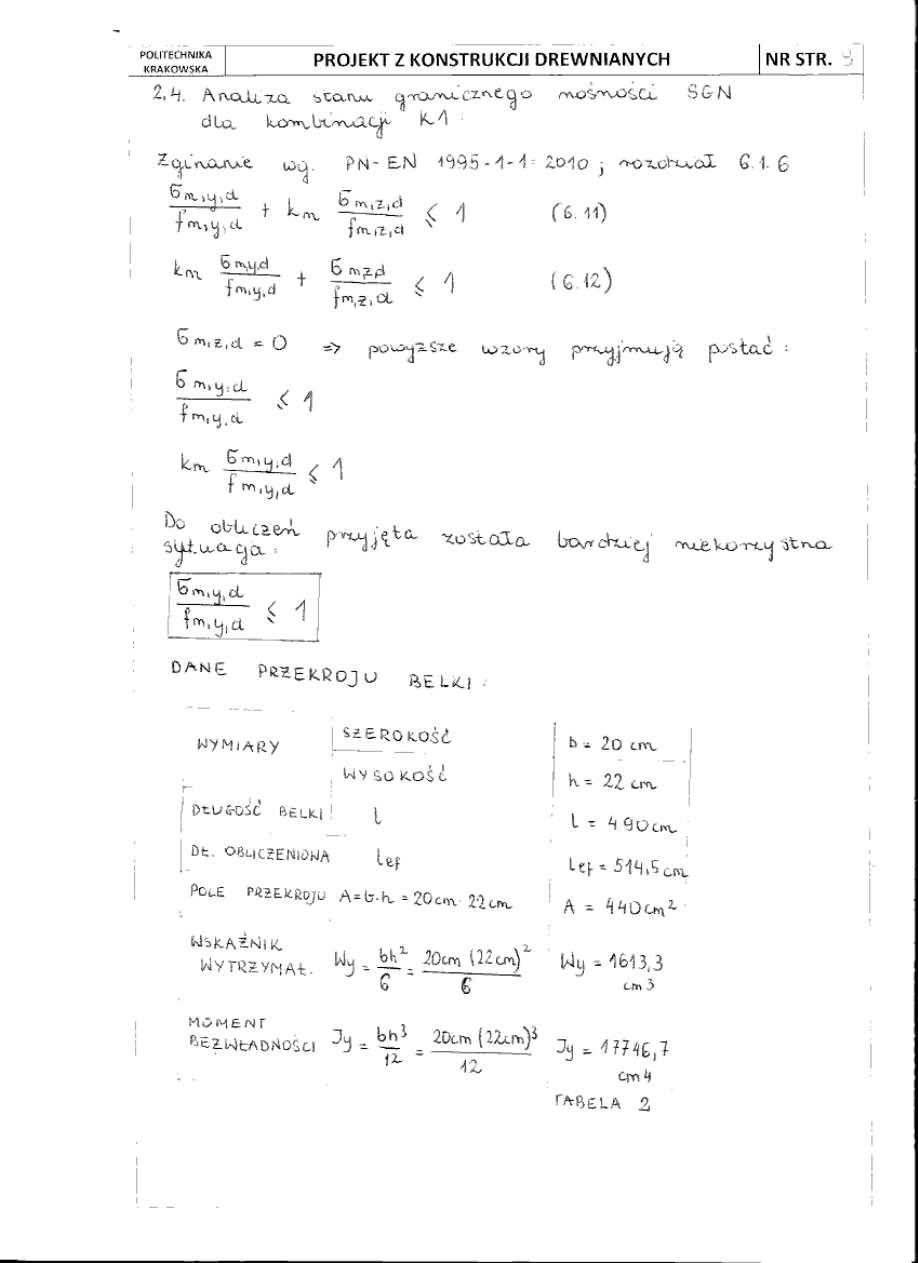 POLITECHNIKA KRAKOWSKA PROJEKT Z KONSTRUKCJI DREWNIANYCH NR STR.
2,4. Analiza stanu granicznego nośności SGN
dla kombinacji K1:
Zginanie wg. PN-EN 1995-1-1:2010; rozdział 6.1.6
σm,y,d / fm,y,d + km σm,z,d / fm,z,d ≤ 1 (6.11)
km σm,y,d / fm,y,d + σm,z,d / fm,z,d ≤ 1 (6.12)
σm,z,d = 0 => powyższe wzory przyjmują postać:
σm,y,d / fm,y,d ≤ 1
km σm,y,d / fm,y,d ≤ 1
Do obliczeń przyjęta została bardziej niekorzystna
sytuacja:
σm,y,d / fm,y,d ≤ 1
DANE PRZEKROJU BELKI:
WYMIARY SZEROKOŚĆ b = 20 cm
WYSOKOŚĆ h = 22 cm
DŁUGOŚĆ BELKI l l = 490 cm
DŁ. OBLICZENIOWA lef lef = 514,5 cm
POLE PRZEKROJU A=b·h = 20cm·22cm A = 440 cm²
WSKAŹNIK WYTRZYMAŁ. Wy = bh²/6 = 20cm (22cm)²/6 Wy = 1613,3 cm3
MOMENT BEZWŁADNOŚCI Jy = bh³/12 = 20cm (22cm)³/12 Jy = 17746,7 cm4
TABELA 2